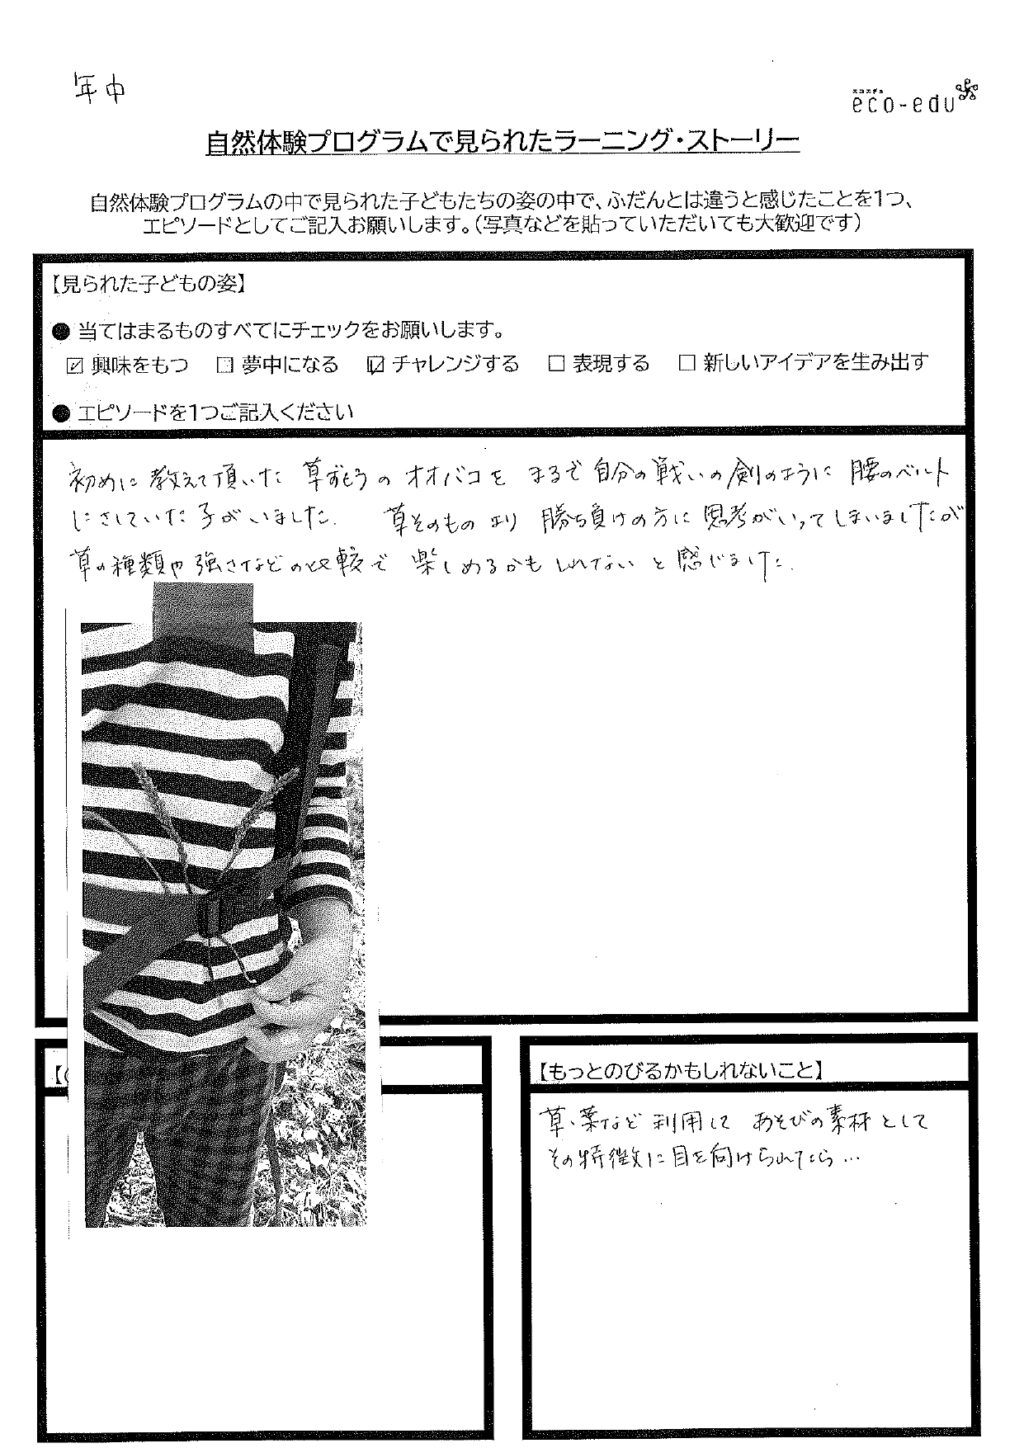 年中
エコエデュ
eco-edu
自然体験プログラムで見られたラーニング・ストーリー
自然体験プログラムの中で見られた子どもたちの姿の中で、ふだんとは違うと感じたことを1つ、
エピソードとしてご記入お願いします。(写真などを貼っていただいても大歓迎です)
【見られた子どもの姿】
● 当てはまるものすべてにチェックをお願いします。
☑ 興味をもつ □ 夢中になる ☑ チャレンジする □ 表現する □ 新しいアイデアを生み出す
● エピソードを1つご記入ください
初めに教えて頂いた 草ずもうのオオバコを まるで自分の戦いの剣のように 腰のベルト
にさしていた子がいました. 草そのものより 勝ち負けの方に思考がいってしまいましたが
草の種類や強さなどの比較で 楽しめるかもしれないと感じました.
【
【もっとのびるかもしれないこと】
草・葉など利用して あそびの素材として
その特徴に目を向けられたら…